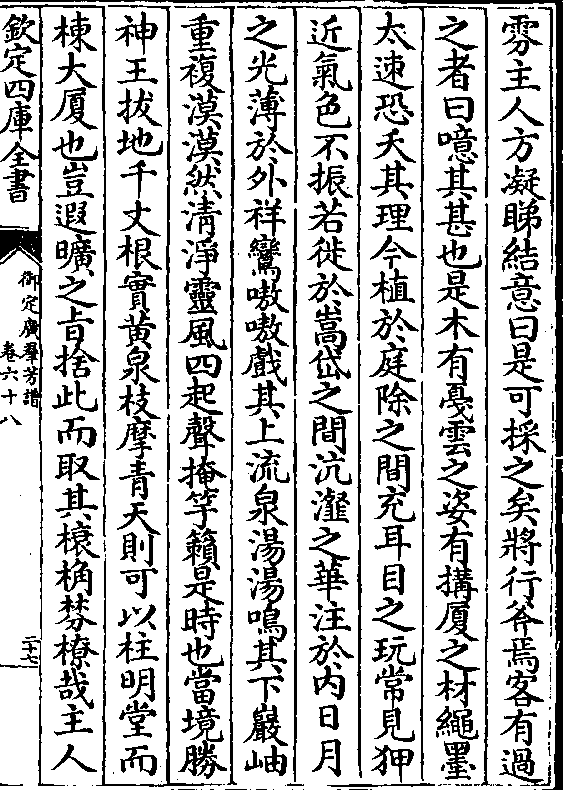 雰主人方凝睇結意曰是可採之矣將行斧焉客有過
之者曰噫其甚也是木有戞雲之姿有搆厦之材繩墨
太速恐夭其理今植於庭除之間充耳目之玩常見狎
近氣色不振若徙於嵩岱之間沆瀣之華注於内日月
之光薄於外祥鸞嗷嗷戲其上流泉湯湯鳴其下巖岫
重複漠漠然清淨靈風四起聲掩竽籟是時也當境勝
神王拔地千丈根實黄泉枝摩青天則可以柱明堂而
棟大厦也豈遐曠之㫖捨此而取其榱桷棼橑哉主人
欽定四庫全書
御定廣羣芳譜
卷六十八
二十七